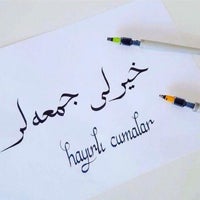 خيرلى جمعه‌لر
hayırlı cumalar